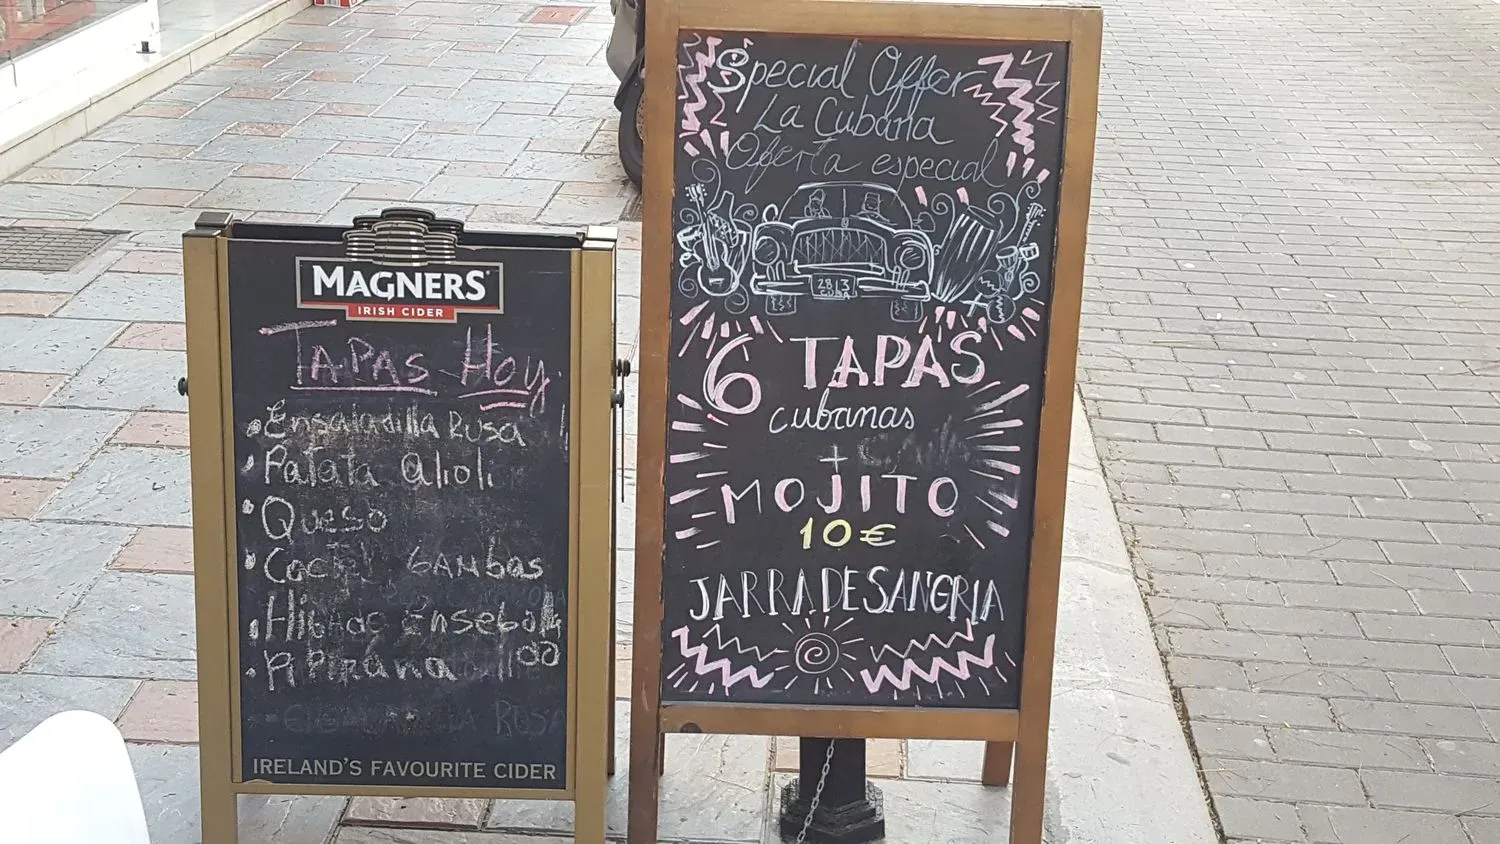 MAGNERS
IRISH CIDER
TAPAS HOY
Ensaladilla RUSA
Patata alioli
Queso
Coctel GAMBAS
Hígado Enseboll
ao
PiPiRána
RUSA
IRELAND'S FAVOURITE CIDER
Special Offer
La Cubana
Oferta especial
2813
CUBA
6 TAPAS
cubanas
+
MOJITO
10€
JARRA DE SANGRIA